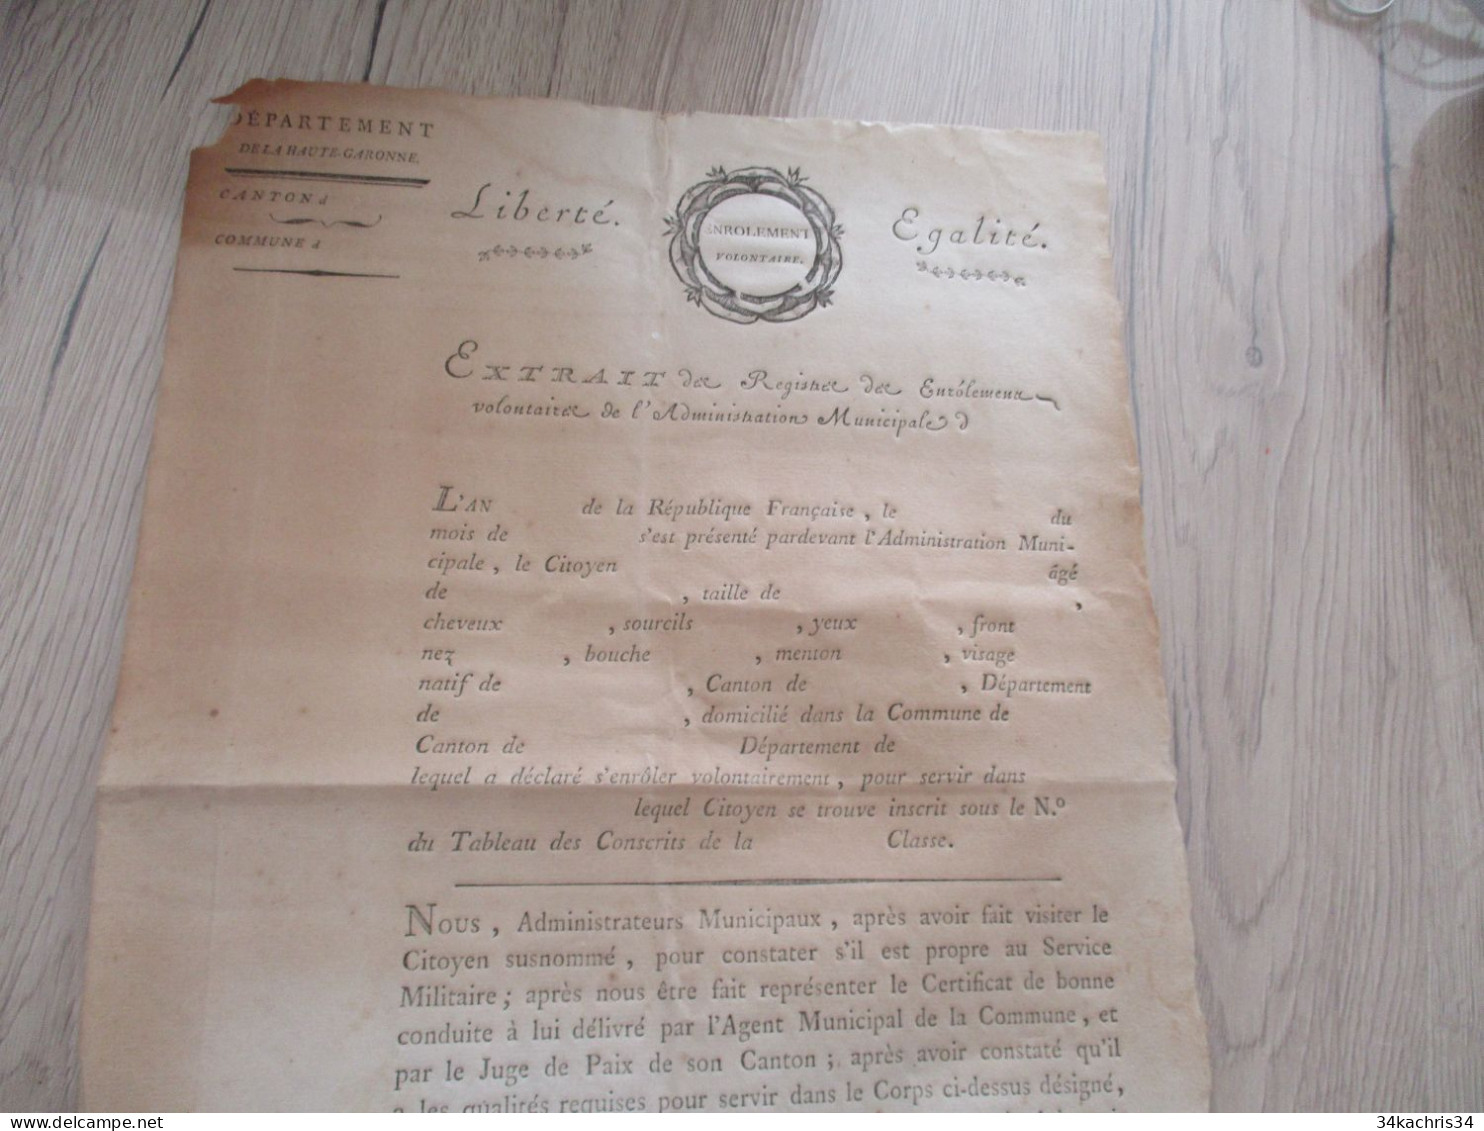 DÉPARTEMENT
DE LA HAUTE-GARONNE.
CANTON d
COMMUNE d
Liberté.
ENROLEMENT
VOLONTAIRE.
Egalité.
EXTRAIT des Registres des Enrôlemens
volontaires de l'Administration Municipale d
L'AN de la République Française, le du
mois de s'est présenté pardevant l'Administration Muni-
cipale, le Citoyen âgé
de , taille de ,
cheveux , sourcils , yeux , front
nez , bouche , menton , visage
natif de , Canton de , Département
de , domicilié dans la Commune de
Canton de Département de
lequel a déclaré s'enrôler volontairement, pour servir dans
lequel Citoyen se trouve inscrit sous le N.º
du Tableau des Conscrits de la Classe.
NOUS, Administrateurs Municipaux, après avoir fait visiter le
Citoyen susnommé, pour constater s'il est propre au Service
Militaire; après nous être fait représenter le Certificat de bonne
conduite à lui délivré par l'Agent Municipal de la Commune, et
par le Juge de Paix de son Canton; après avoir constaté qu'il
a les qualités requises pour servir dans le Corps ci-dessus désigné,
34kachris34